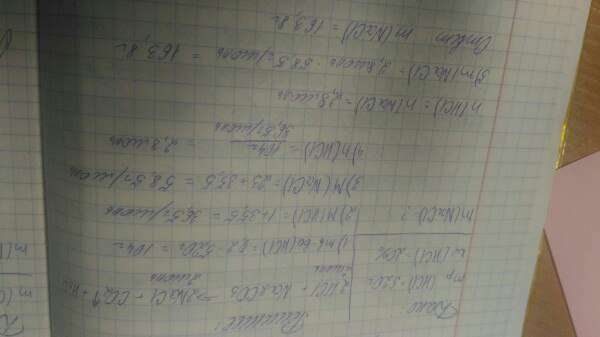 Дано:
mр (HCl) = 520г
ω (HCl) = 20%
m(NaCl) - ?
Решение:
2HCl + Na2CO3 → 2NaCl + CO2↑ + H2O
2 моль 2 моль
1) mв-ва (HCl) = 0,2 · 520г = 104г
2) M(HCl) = 1 + 35,5 = 36,5г/моль
3) M(NaCl) = 23 + 35,5 = 58,5г/моль
4) n(HCl) = 104г / 36,5г/моль = 2,8 моль
n(HCl) = n(NaCl) = 2,8 моль
5) m(NaCl) = 2,8 моль · 58,5г/моль = 163,8г
Ответ: m(NaCl) = 163,8г